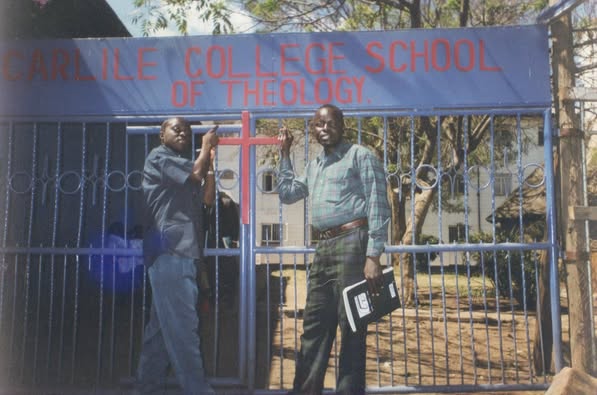 CARLILE COLLEGE SCHOOL
OF THEOLOGY.